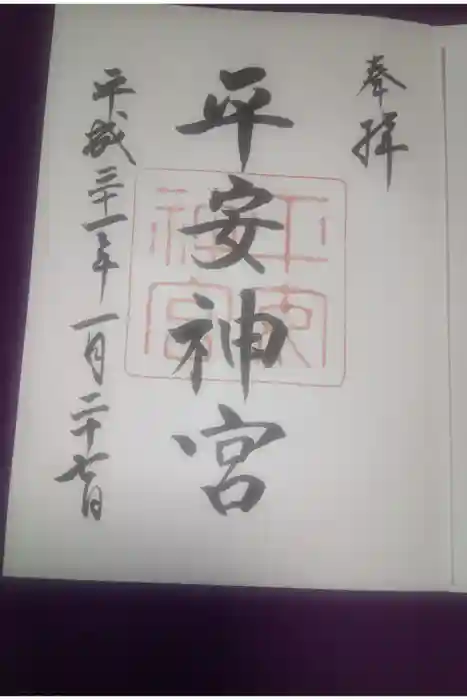 奉拝
平安神宮
平安
神宮
平成三十一年一月二十七日